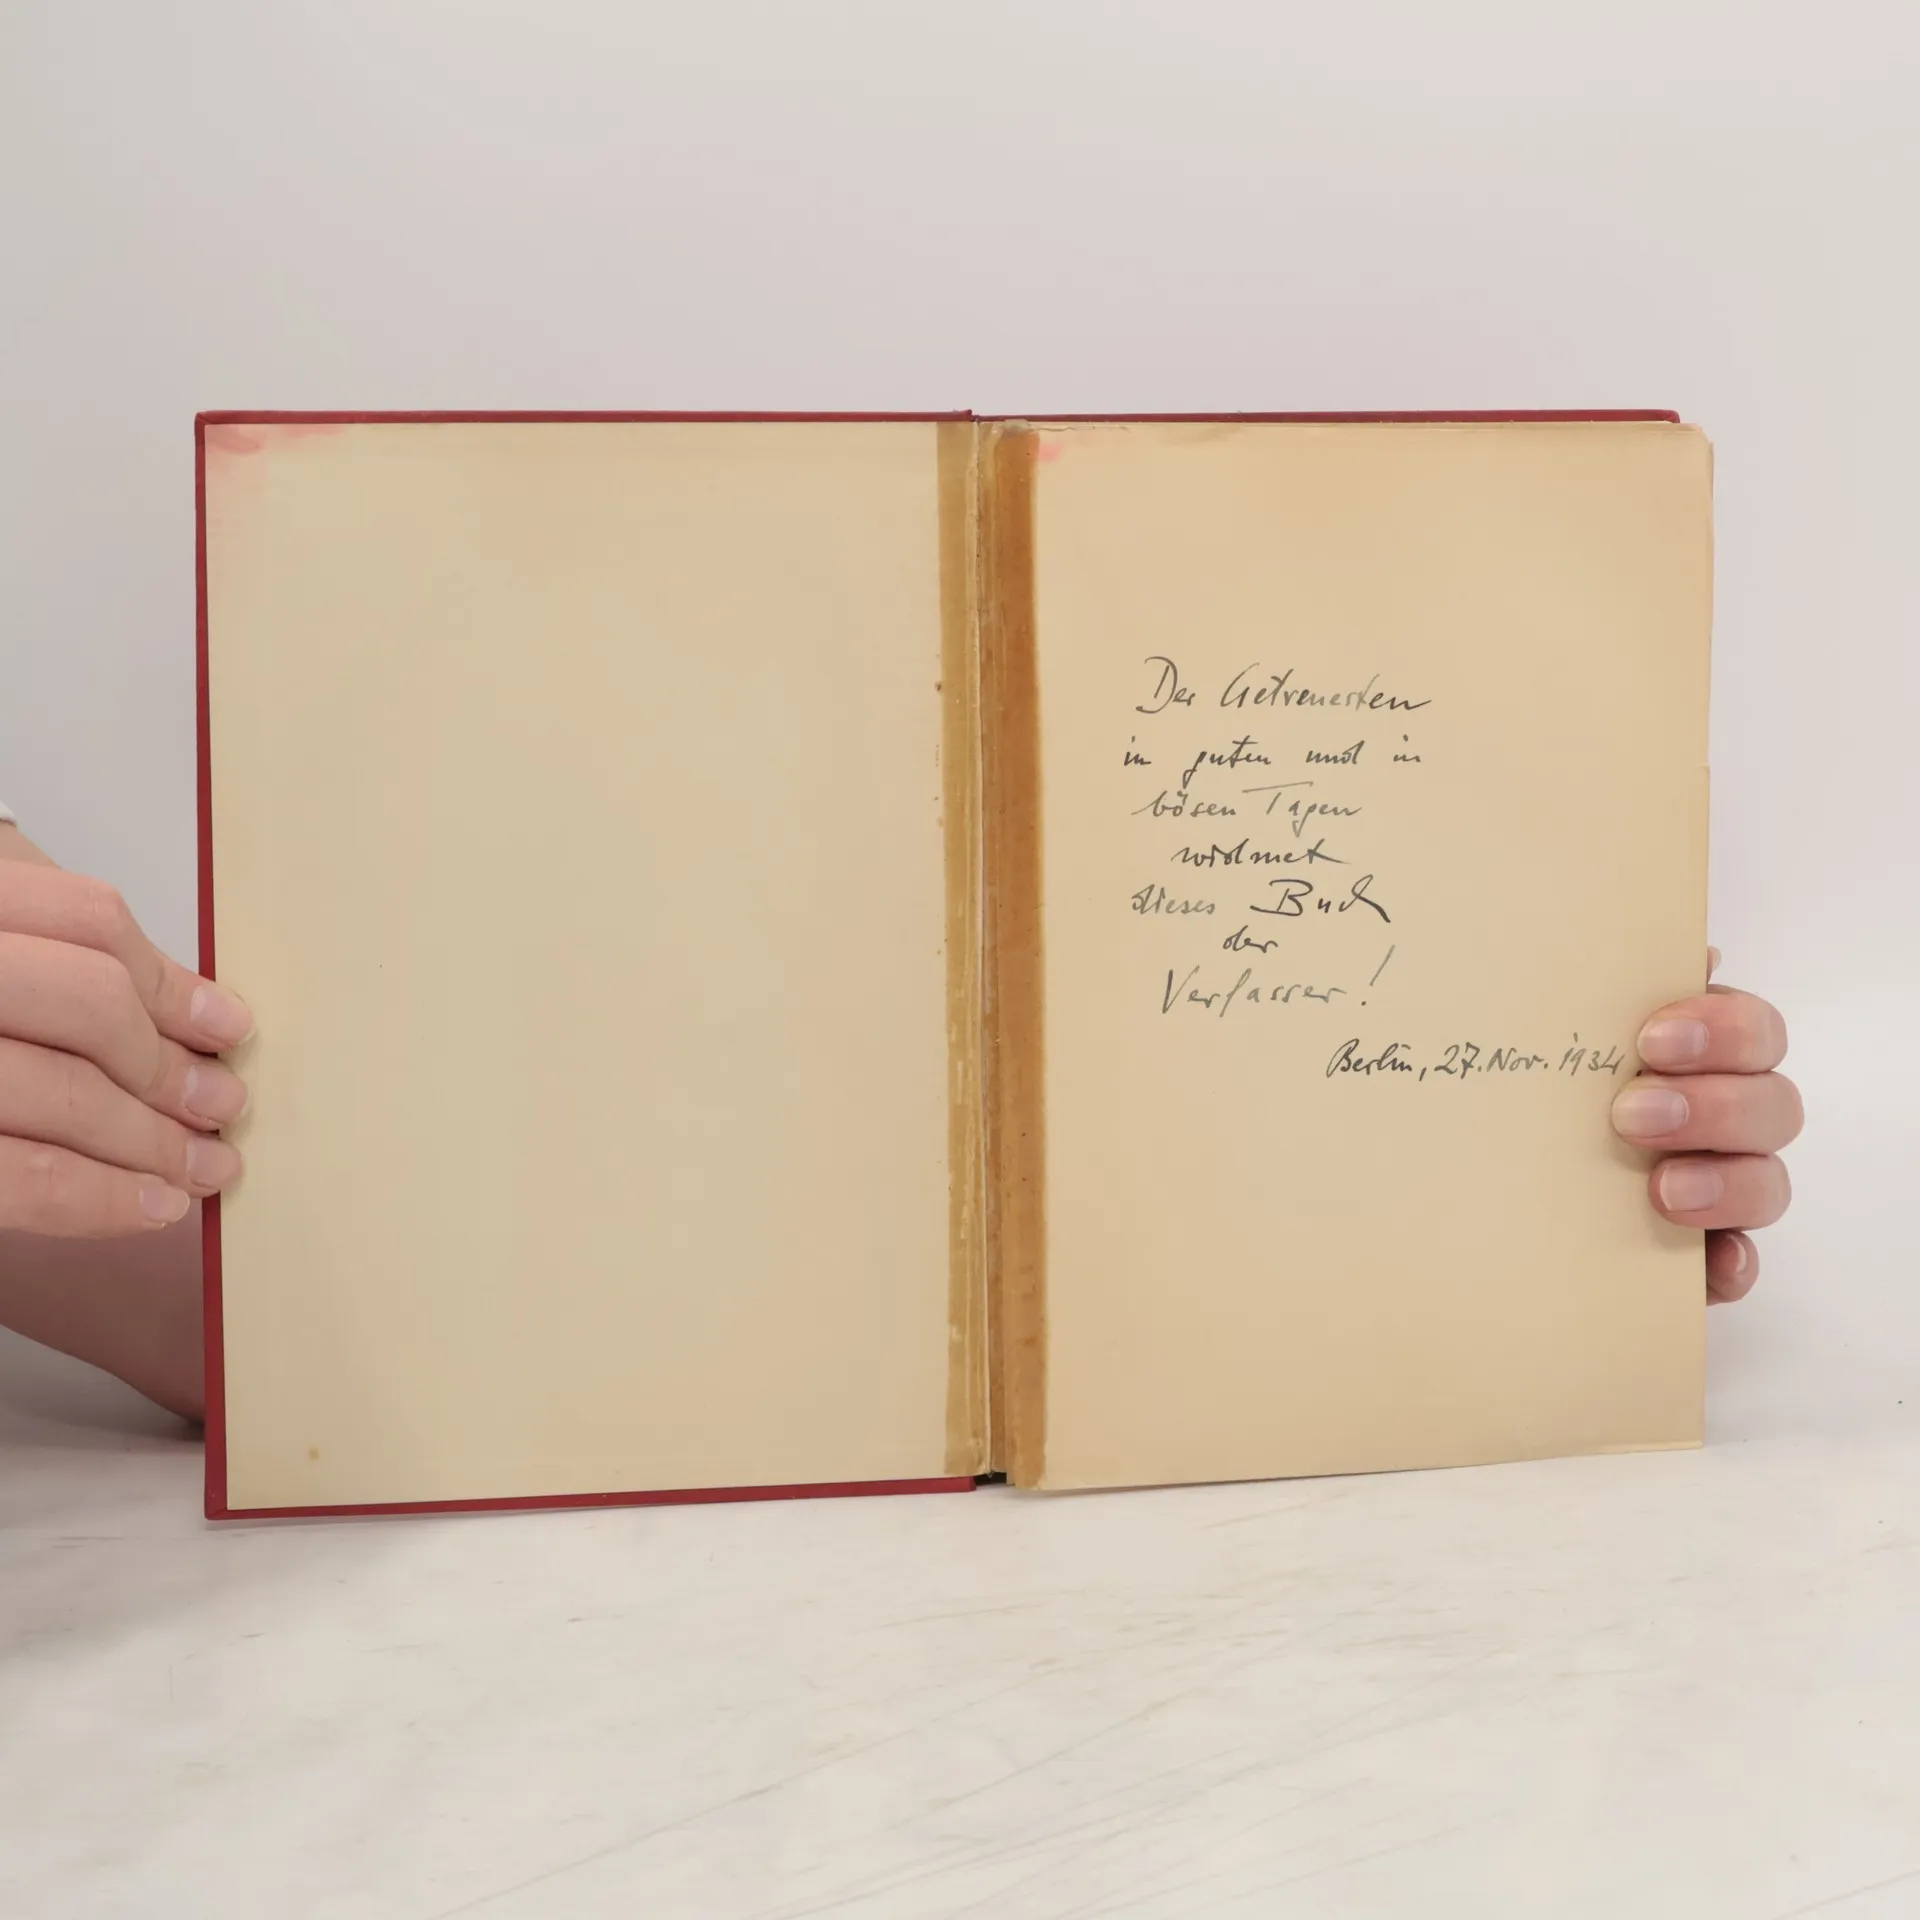 Der Getreuesten
in guten und in
bösen Tagen
widmet
dieses Buch
der
Verfasser!
Berlin, 27. Nov. 1934.